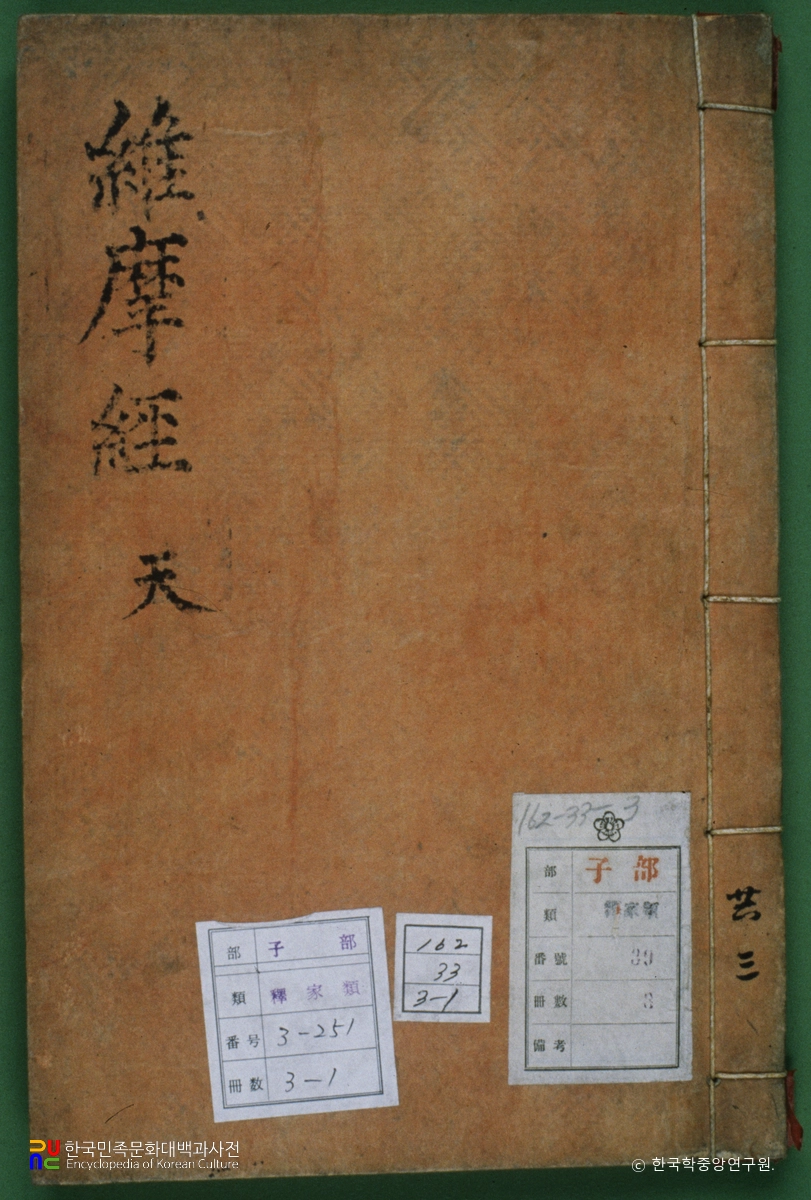 維摩經
天
共三
162-33-3
部 子部
類 釋家類
番號 39
冊數 3
備考
162
33
3-1
部 子部
類 釋家類
番号 3-251
冊数 3-1
한국민족문화대백과사전
Encyclopedia of Korean Culture
© 한국학중앙연구원.